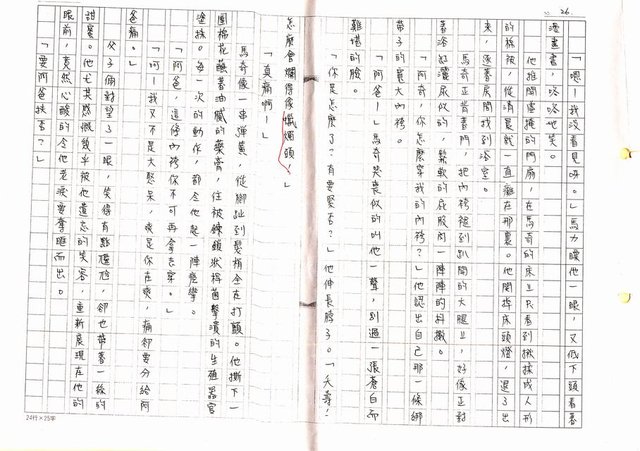 26.
「嗯！我沒看見呀。」馬力瞪他一眼，又低下頭看著
漫畫書，咯咯地笑。
他推開虛掩的門扇，在馬奇的床上只看到揪揉成人形
的棉被，從清晨就一直癱在那裏。他關掉床頭燈，退了出
來，逐著房間找到浴室。
馬奇正背著門，把內袴褪到趴開的大腿上，好像正對
著浴缸灑尿似的，鬆軟的屁股肉一陣陣的抖擻。
「阿奇，你怎麼穿我的內袴？」他認出自己那一條綁
帶子的寬大內袴。
「阿爸！」馬奇哭喪似的叫他一聲，別過一張蒼白而
難堪的臉。
「你是怎麼了？有要緊否？」他伸長脖子。「夭壽！
怎麼會爛得像爛頭，」
「真痛啊！」
馬奇像一串彈簧，從腳趾到髮梢全在打顫。他撕下一
團棉花蘸著油膩的藥膏，往被鏈頭狀桿菌擊潰的生殖器官
塗抹。每一次的動作，都令他起一陣痙攣。
「阿爸，這條內袴你不可再拿去穿。」
「呵！我又不是大憨呆，爽是你在爽，痛卻要分給阿
爸痛。」
父子倆對望了一眼，笑得有點尷尬，卻也帶著一絲的
甜蜜。他尤其感慨幾乎被他遺忘的笑容，重新展現在他的
眼前，竟然心酸的令他老淚要奪眶而出。
「要阿爸扶否？」
24行×25字